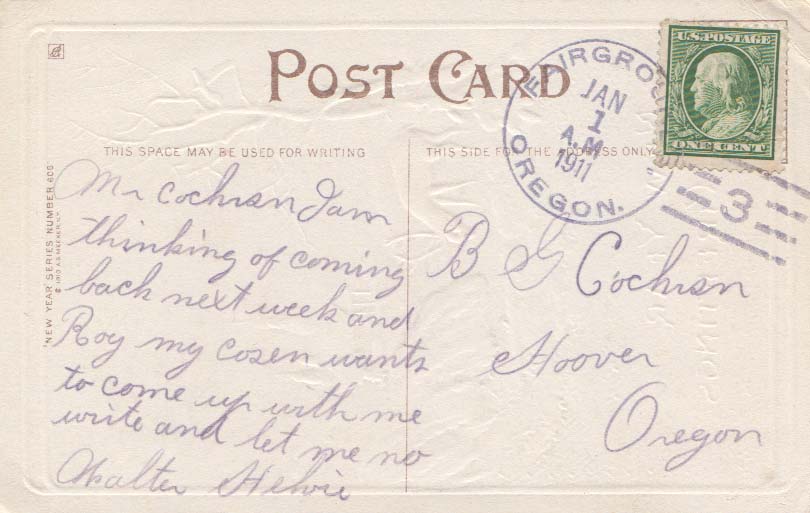 POST CARD
THIS SPACE MAY BE USED FOR WRITING
THIS SIDE FOR THE ADDRESS ONLY
FAIRGRO
JAN
1
A.M.
1911
OREGON.
U.S. POSTAGE
ONE CENT
3
NEW YEAR SERIES NUMBER 608
Mr Cochran I am
thinking of coming
back next week and
Roy my cosen wants
to come up with me
write and let me no
Walter
B G Cochran
Hoover
Oregon